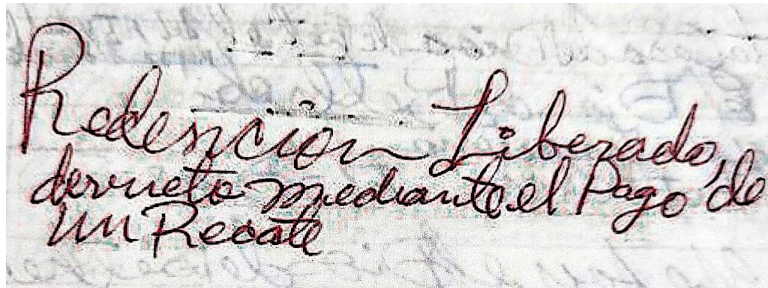 Redencion Liberado,
devuelto mediante el Pago de
un Recate